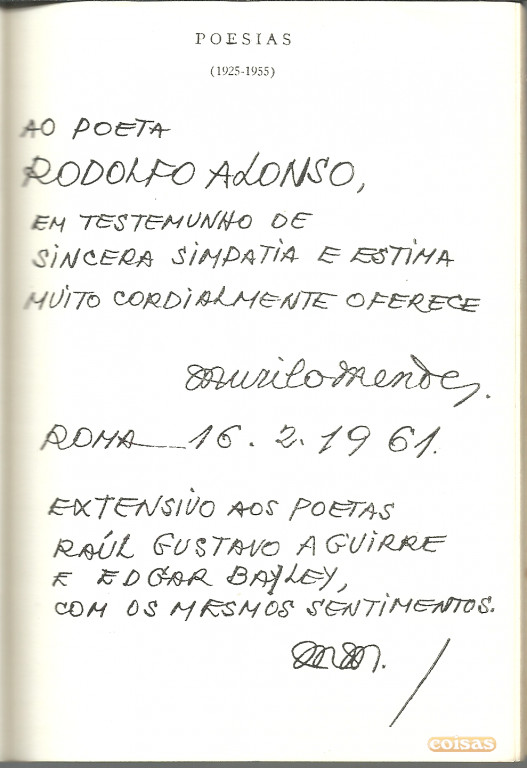 POESIAS
(1925-1955)
AO POETA
RODOLFO ALONSO,
EM TESTEMUNHO DE
SINCERA SIMPATIA E ESTIMA
MUITO CORDIALMENTE OFERECE
Murilo Mendes.
ROMA 16.2.1961.
EXTENSIVO AOS POETAS
RAÚL GUSTAVO AGUIRRE
E EDGAR BAYLEY,
COM OS MESMOS SENTIMENTOS.
MM.
coisas